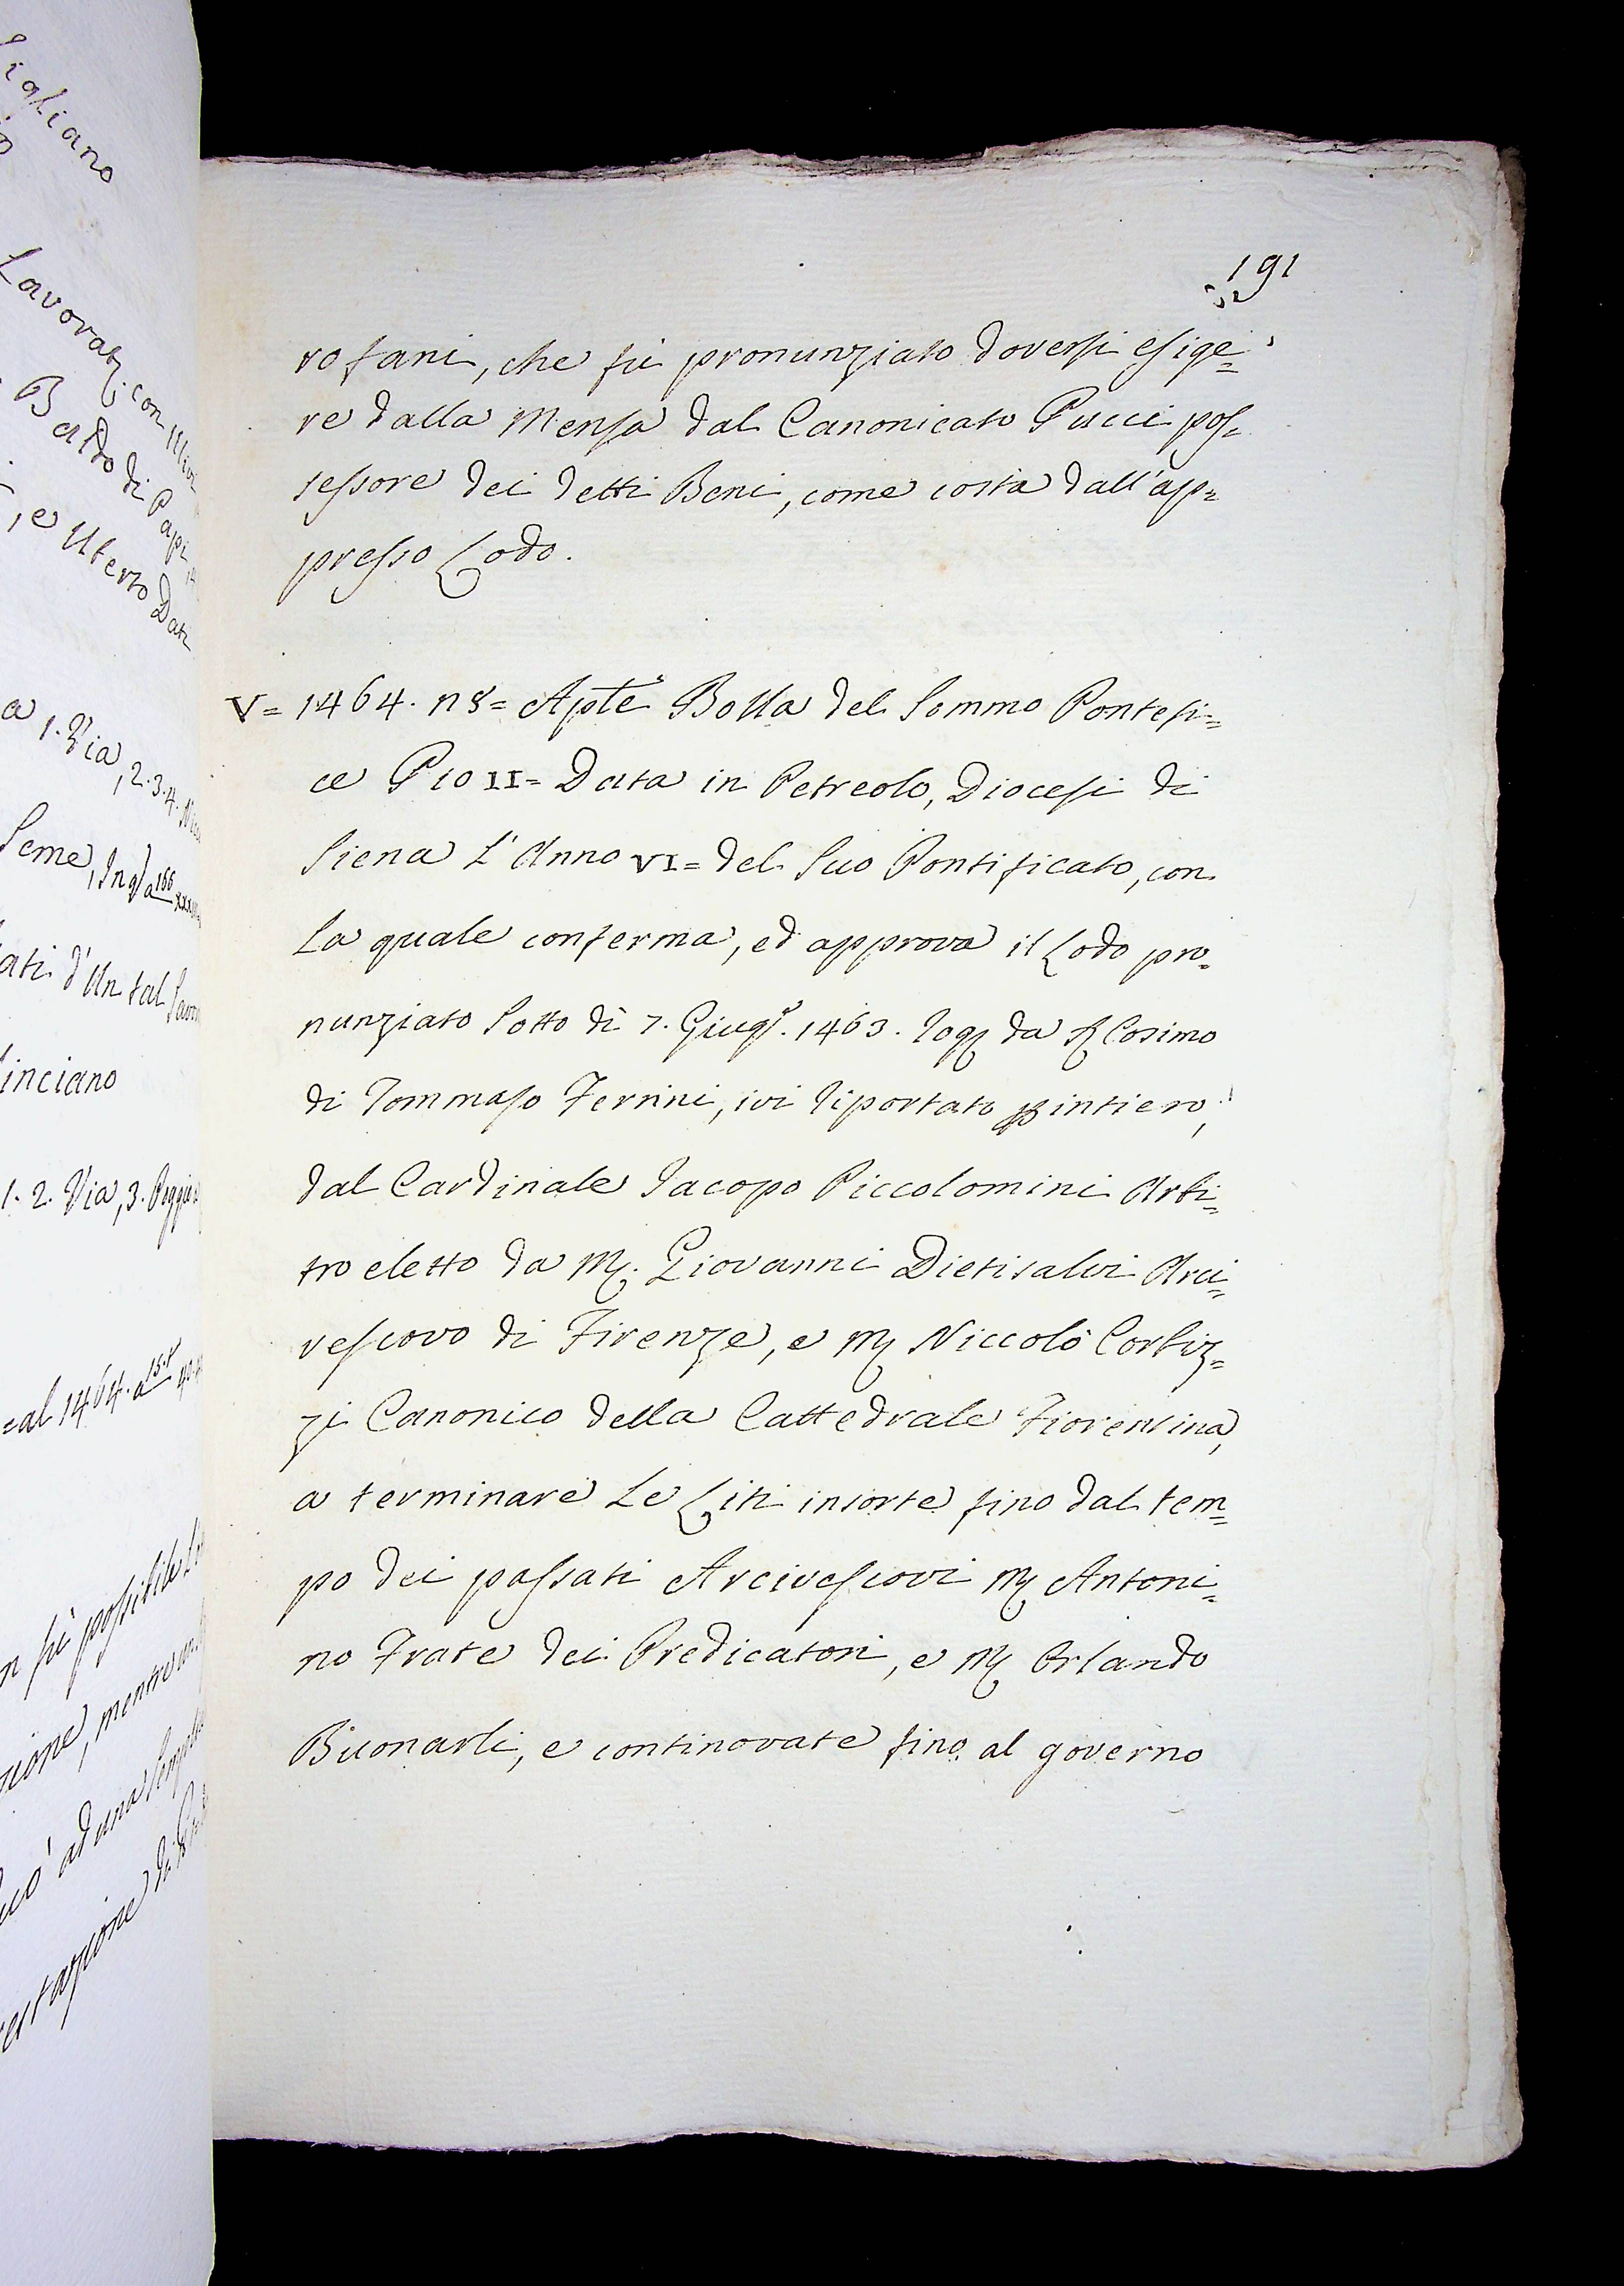 igliano
Lavorat. con
Baldo di Papi
, e Uberto Dati
a 1. Via, 2. 3. 4.
Seme,
ati d'Un tal
inciano
1. 2. Via, 3.
=al 1464. a
n fù possibile
zione, mentre
ad una
estazione di
191
rofani, che fù pronunziato doversi esige=
re dalla Mensa dal Canonicato Pucci pos=
sessore dei detti Beni, come costa dall'ap=
presso Lodo.
V= 1464. n8= Aplē Bolla del Sommo Pontefi=
ce Pio II= Data in Petreolo, Diocesi di
Siena L'Anno VI= del Suo Pontificato, con
La quale conferma, ed approva il Lodo pro=
nunziato Sotto dì 7. Giugº. 1463. rog da S Cosimo
di Tommaso Ferrini, ivi riportato p intiero,
dal Cardinale Jacopo Piccolomini Arbi=
tro eletto da M. Giovanni Dietisalvi Arci=
vescovo di Firenze, e M Niccolò Corbiz=
zi Canonico della Cattedrale Fiorentina,
a terminare Le Liti insorte fino dal tem=
po dei passati Arcivescovi M Antoni=
no Frate dei Predicatori, e M Orlando
Buonarli, e continovate fino al governo